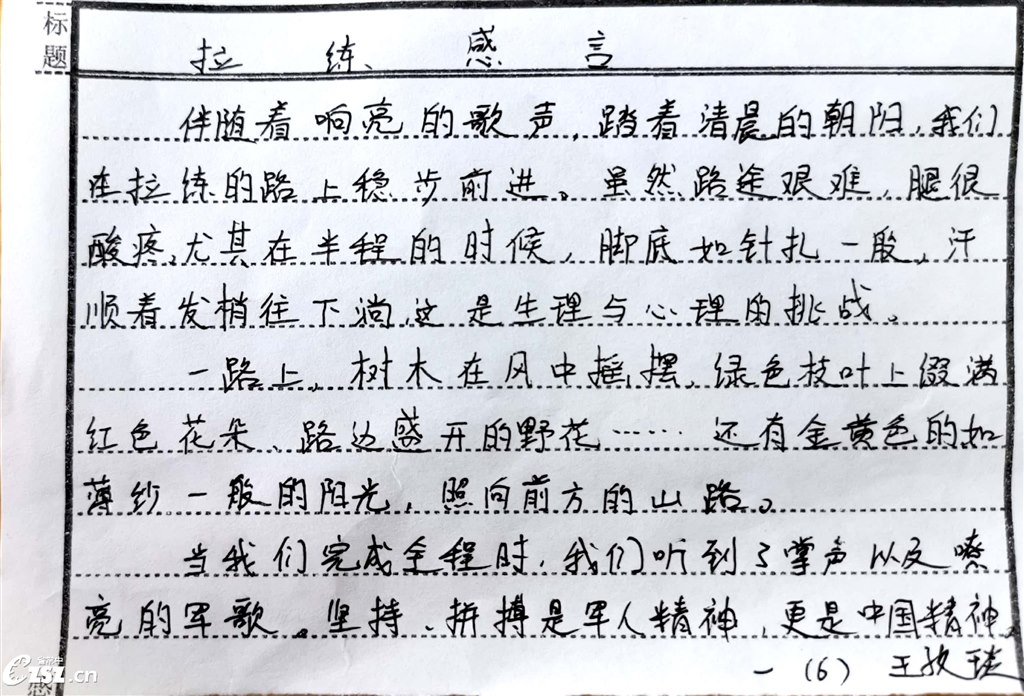 标题
拉练感言
伴随着响亮的歌声，踏着清晨的朝阳，我们
在拉练的路上稳步前进。虽然路途艰难，腿很
酸疼，尤其在半程的时候，脚底如针扎一般，汗
顺着发梢往下淌，这是生理与心理的挑战。
一路上，树木在风中摇摆，绿色枝叶上缀满
红色花朵、路边盛开的野花……还有金黄色的如
薄纱一般的阳光，照向前方的山路。
当我们完成全程时，我们听到了掌声以及嘹
亮的军歌。坚持、拼搏是军人精神，更是中国精神。
一（6） 王